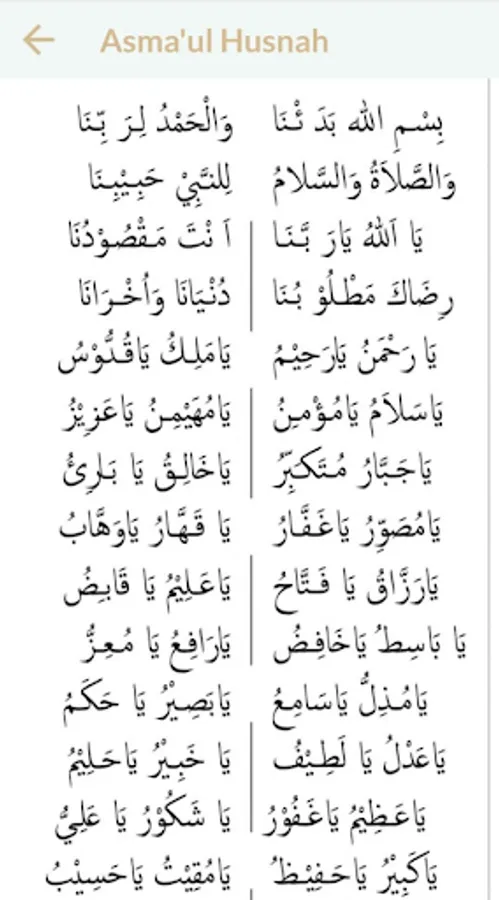 Asma'ul Husnah
بِسْمِ اللهِ بَدَ ئْنَا وَالْحَمْدُ لِرَ بِّنَا
وَالصَّلاَةُ وَالسَّلامُ لِلنَّبِيْ حَبِيْبِنَا
يَا اَللهُ يَارَ بَّنَا اَ نْتَ مَقْصُوْدُنَا
رِضَاكَ مَطْلُوْ بُنَا دُنْيَانَا وَاُخْرَانَا
يَا رَحْمَنُ يَارَحِيْمُ يَامَلِكُ يَاقُدُّوْسُ
يَاسَلاَمُ يَامُؤْمِنُ يَامُهَيْمِنُ يَاعَزِيْزُ
يَاجَبَّارُ مُتَكَبِّرُ يَاخَالِقُ يَا بَارِئُ
يَامُصَوِّرُ يَاغَفَّارُ يَا قَهَّارُ يَاوَهَّابُ
يَارَزَّاقُ يَا فَتَّاحُ يَاعَلِيْمُ يَا قَابِضُ
يَا بَاسِطُ يَاخَافِضُ يَارَافِعُ يَا مُعِزُّ
يَامُذِلُّ يَاسَامِعُ يَابَصِيْرُ يَا حَكَمُ
يَاعَدْلُ يَا لَطِيْفُ يَا خَبِيْرُ يَاحَلِيْمُ
يَاعَظِيْمُ يَاغَفُوْرُ يَا شَكُوْرُ يَا عَلِيُّ
يَاكَبِيْرُ يَاحَفِيْظُ يَامُقِيْتُ يَاحَسِيْبُ